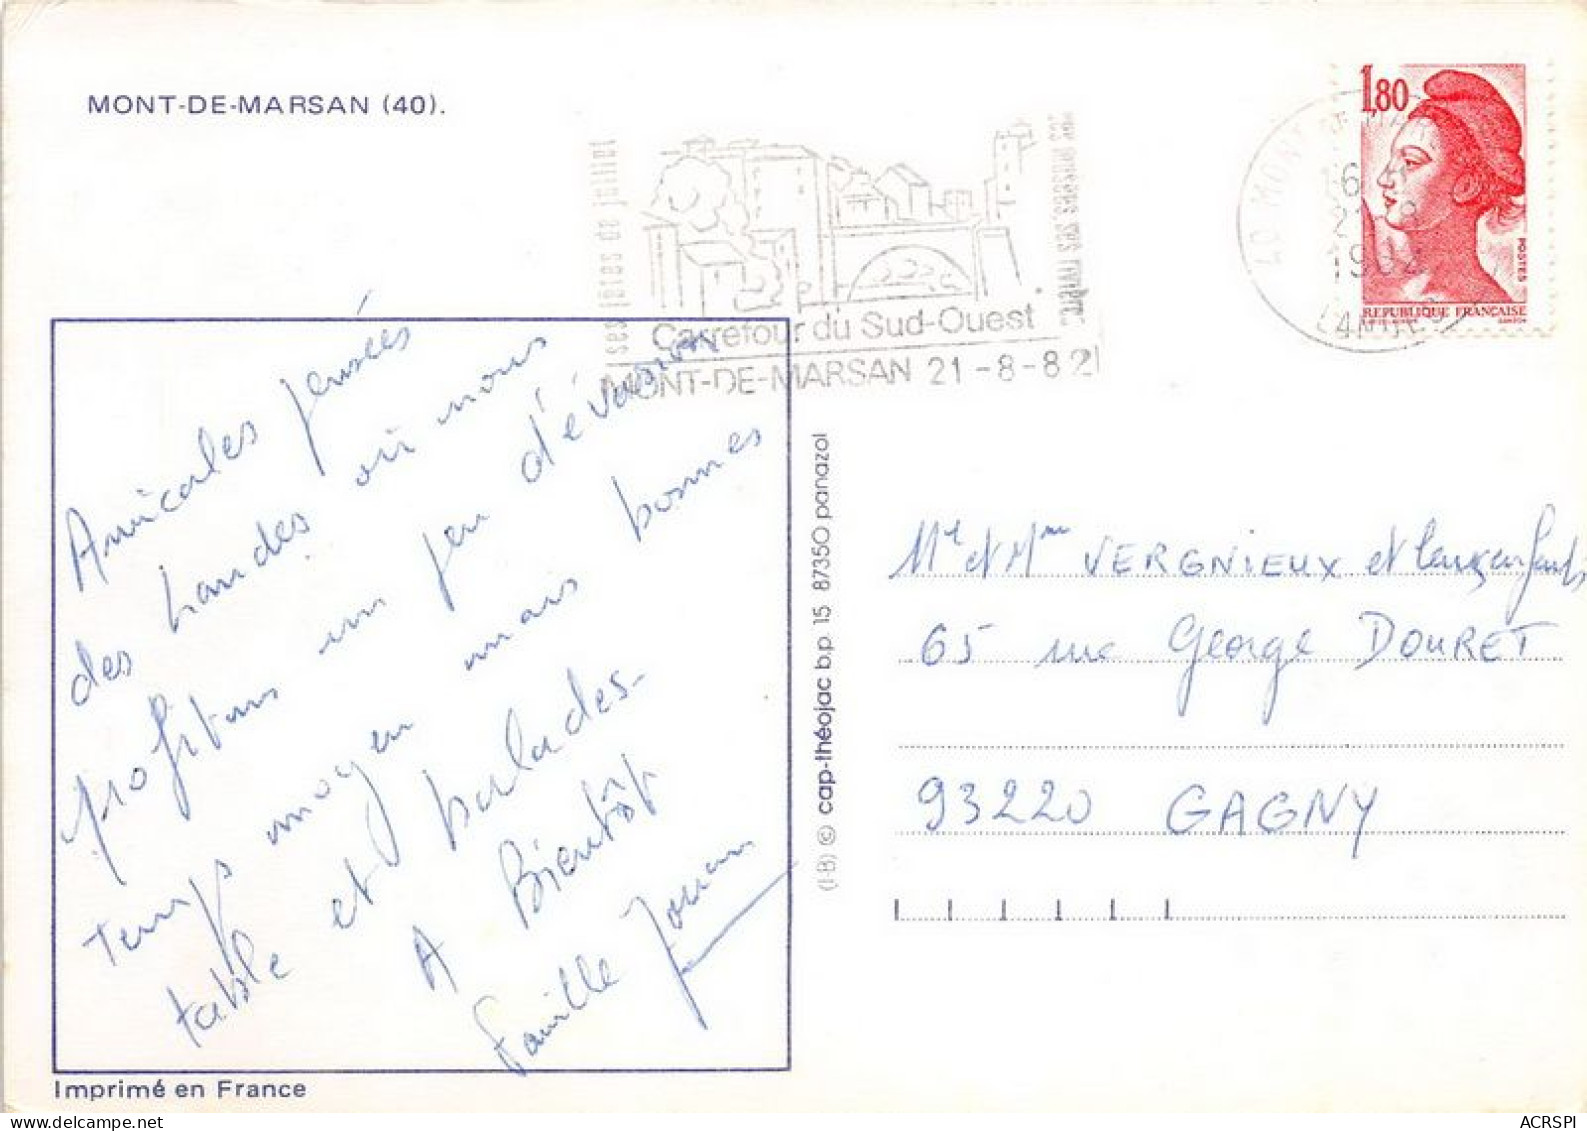 MONT-DE-MARSAN (40).
ses fêtes de juillet
ses musées ses rivières
Carrefour du Sud-Ouest
MONT-DE-MARSAN 21-8-82
40 MONT DE MARSAN
21-8
LANDES
1,80
POSTES
REPUBLIQUE FRANÇAISE
Amicales pensées
des Landes où nous
profitons un peu d'évasion
Temps moyen mais bonnes
table et balades-
A Bientôt
Famille Jouan
Imprimé en France
(I-B) © cap-théojac b.p. 15 87350 panazol
Mr et Mme VERGNIEUX et leurs enfants
65 rue George DOURET
93220 GAGNY
ACRSPI